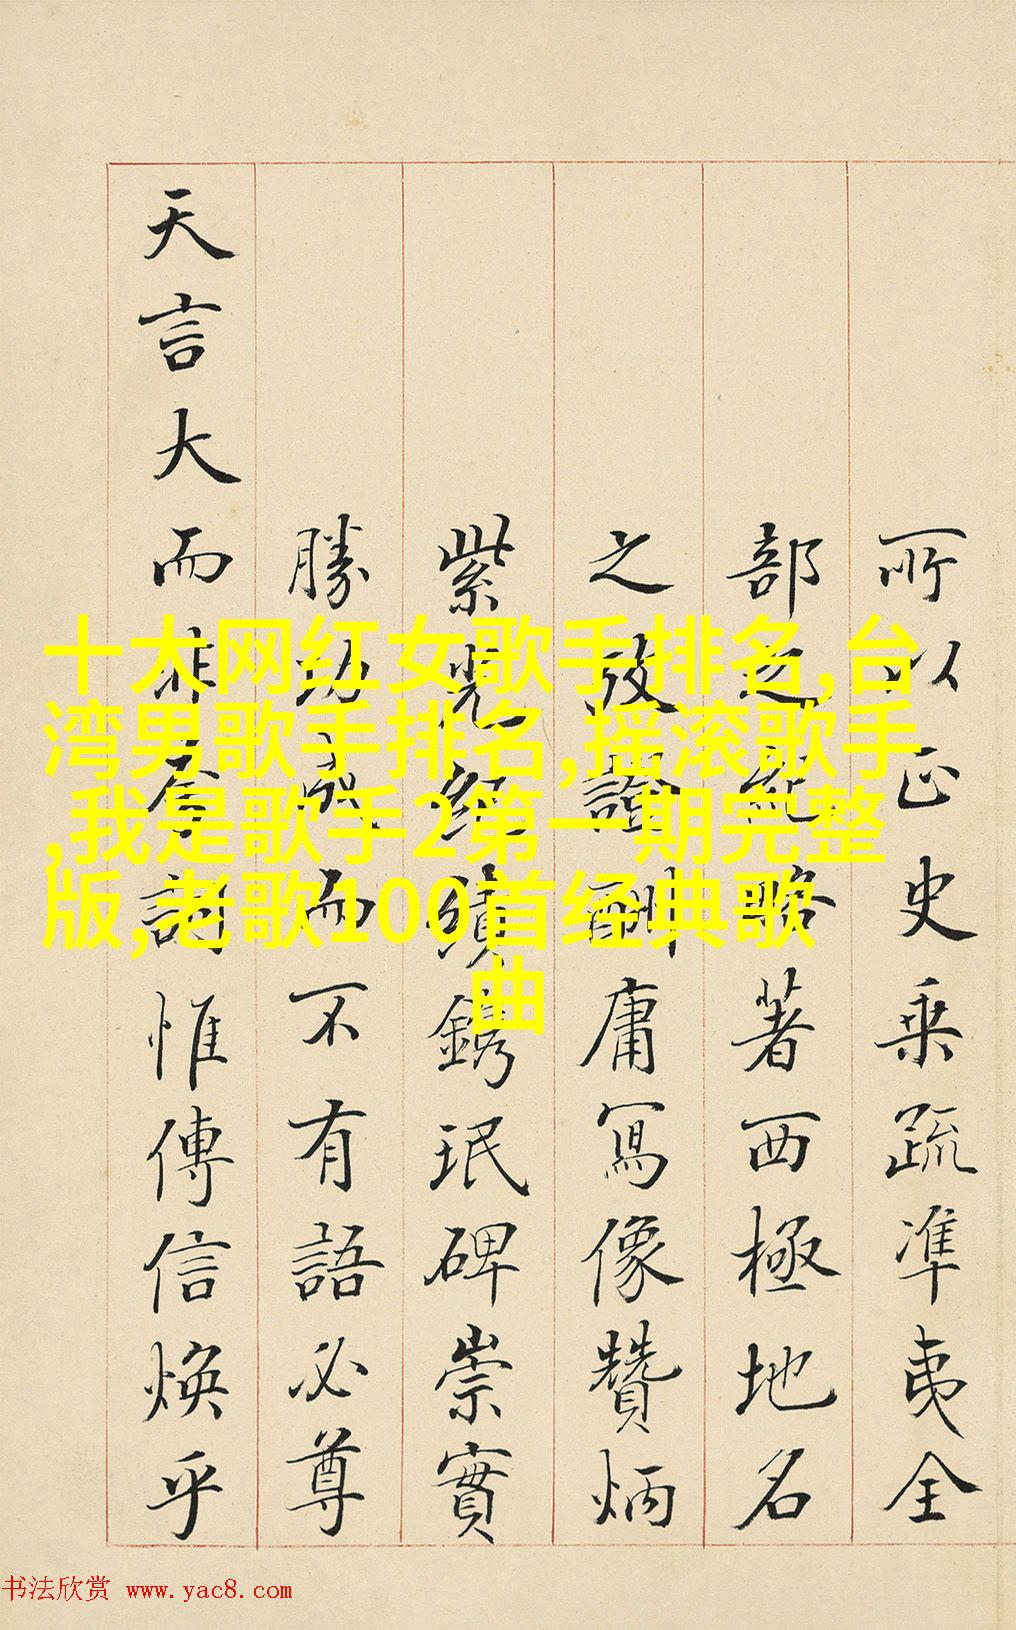 所以正史乘疏準夷全
部之紀略著西極地名
之攷證酬庸寫像贊炳
紫光紀績鐫珉碑崇實
勝功成而不有語必尊
天言大而非夸詞惟傳信煥乎
十大网红女歌手排名,台
湾男歌手排名,摇滚歌手
,我是歌手2第一期完整
版,老歌100首经典歌
曲
书法欣赏 www.yac8.com